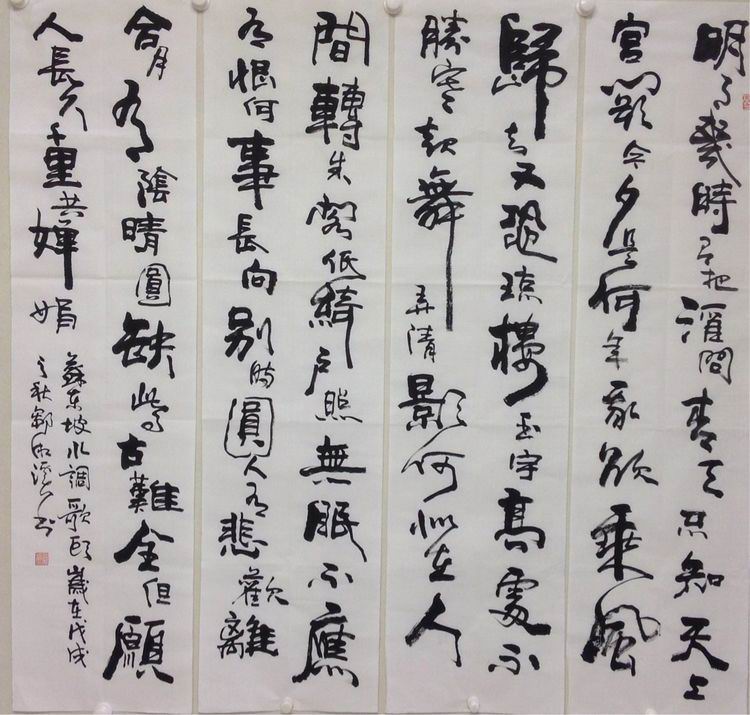 明月幾時有把酒問青天不知天上
宮闕今夕是何年我欲乘風
歸去又恐瓊樓玉宇高處不
勝寒起舞弄清影何似在人
間轉朱閣低綺戶照無眠不應
有恨何事長向別時圓人有悲歡離
合月有陰晴圓缺此事古難全但願
人長久千里共嬋娟
蘇東坡水調歌頭歲在戊戌
之秋鄒書